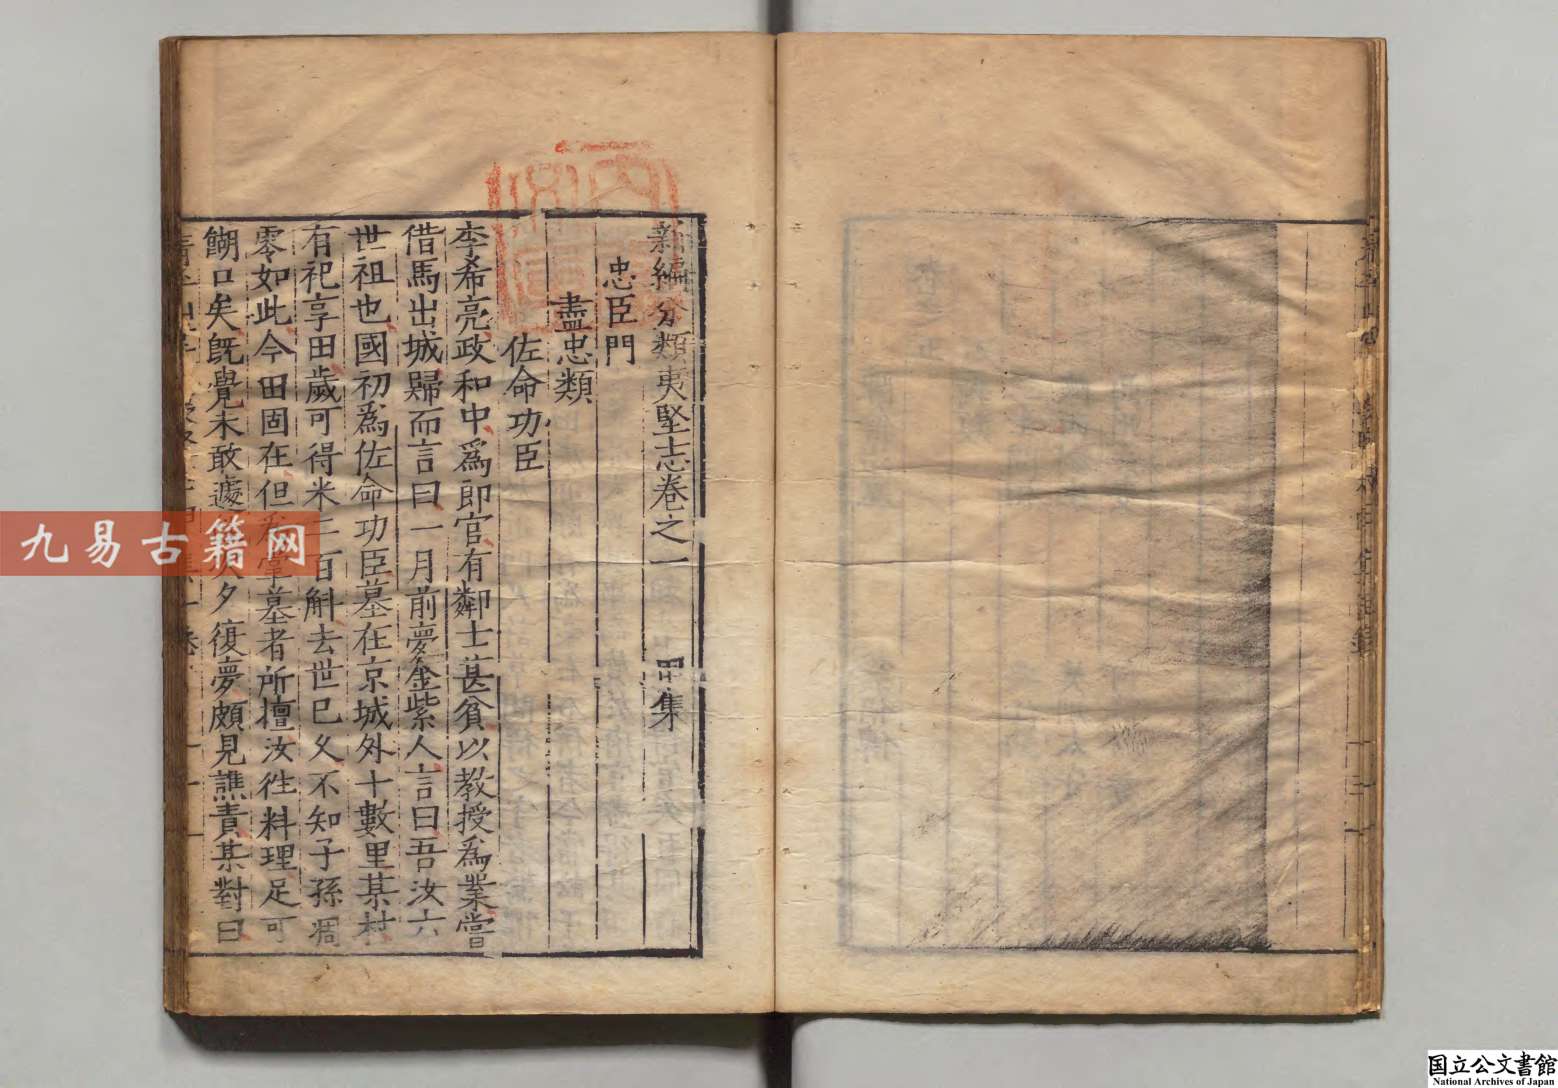 新編分類夷堅志卷之一　甲集
忠臣門
盡忠類
佐命功臣
李希亮政和中爲郎官有鄰士甚貧以教授爲業嘗
借馬出城歸而言曰一月前夢金紫人言曰吾汝六
世祖也國初爲佐命功臣墓在京城外十數里某村
有祀享田歲可得米二百斛去世已久不知子孫凋
零如此今田固在但爲掌墓者所擅汝徃料理足可
餬口矣旣覺未敢遽夕復夢頗見譙責某對曰
九易古籍网
国立公文書館
National Archives of Japan